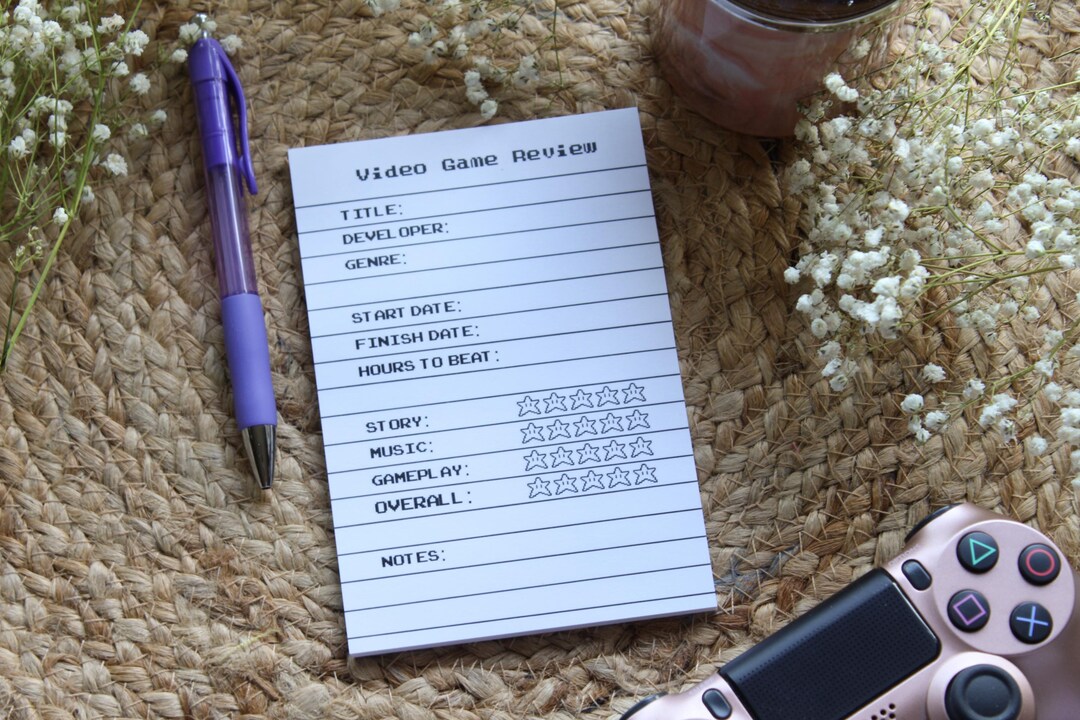 Video Game Review
TITLE:
DEVELOPER:
GENRE:
START DATE:
FINISH DATE:
HOURS TO BEAT:
STORY:
MUSIC:
GAMEPLAY:
OVERALL:
NOTES: